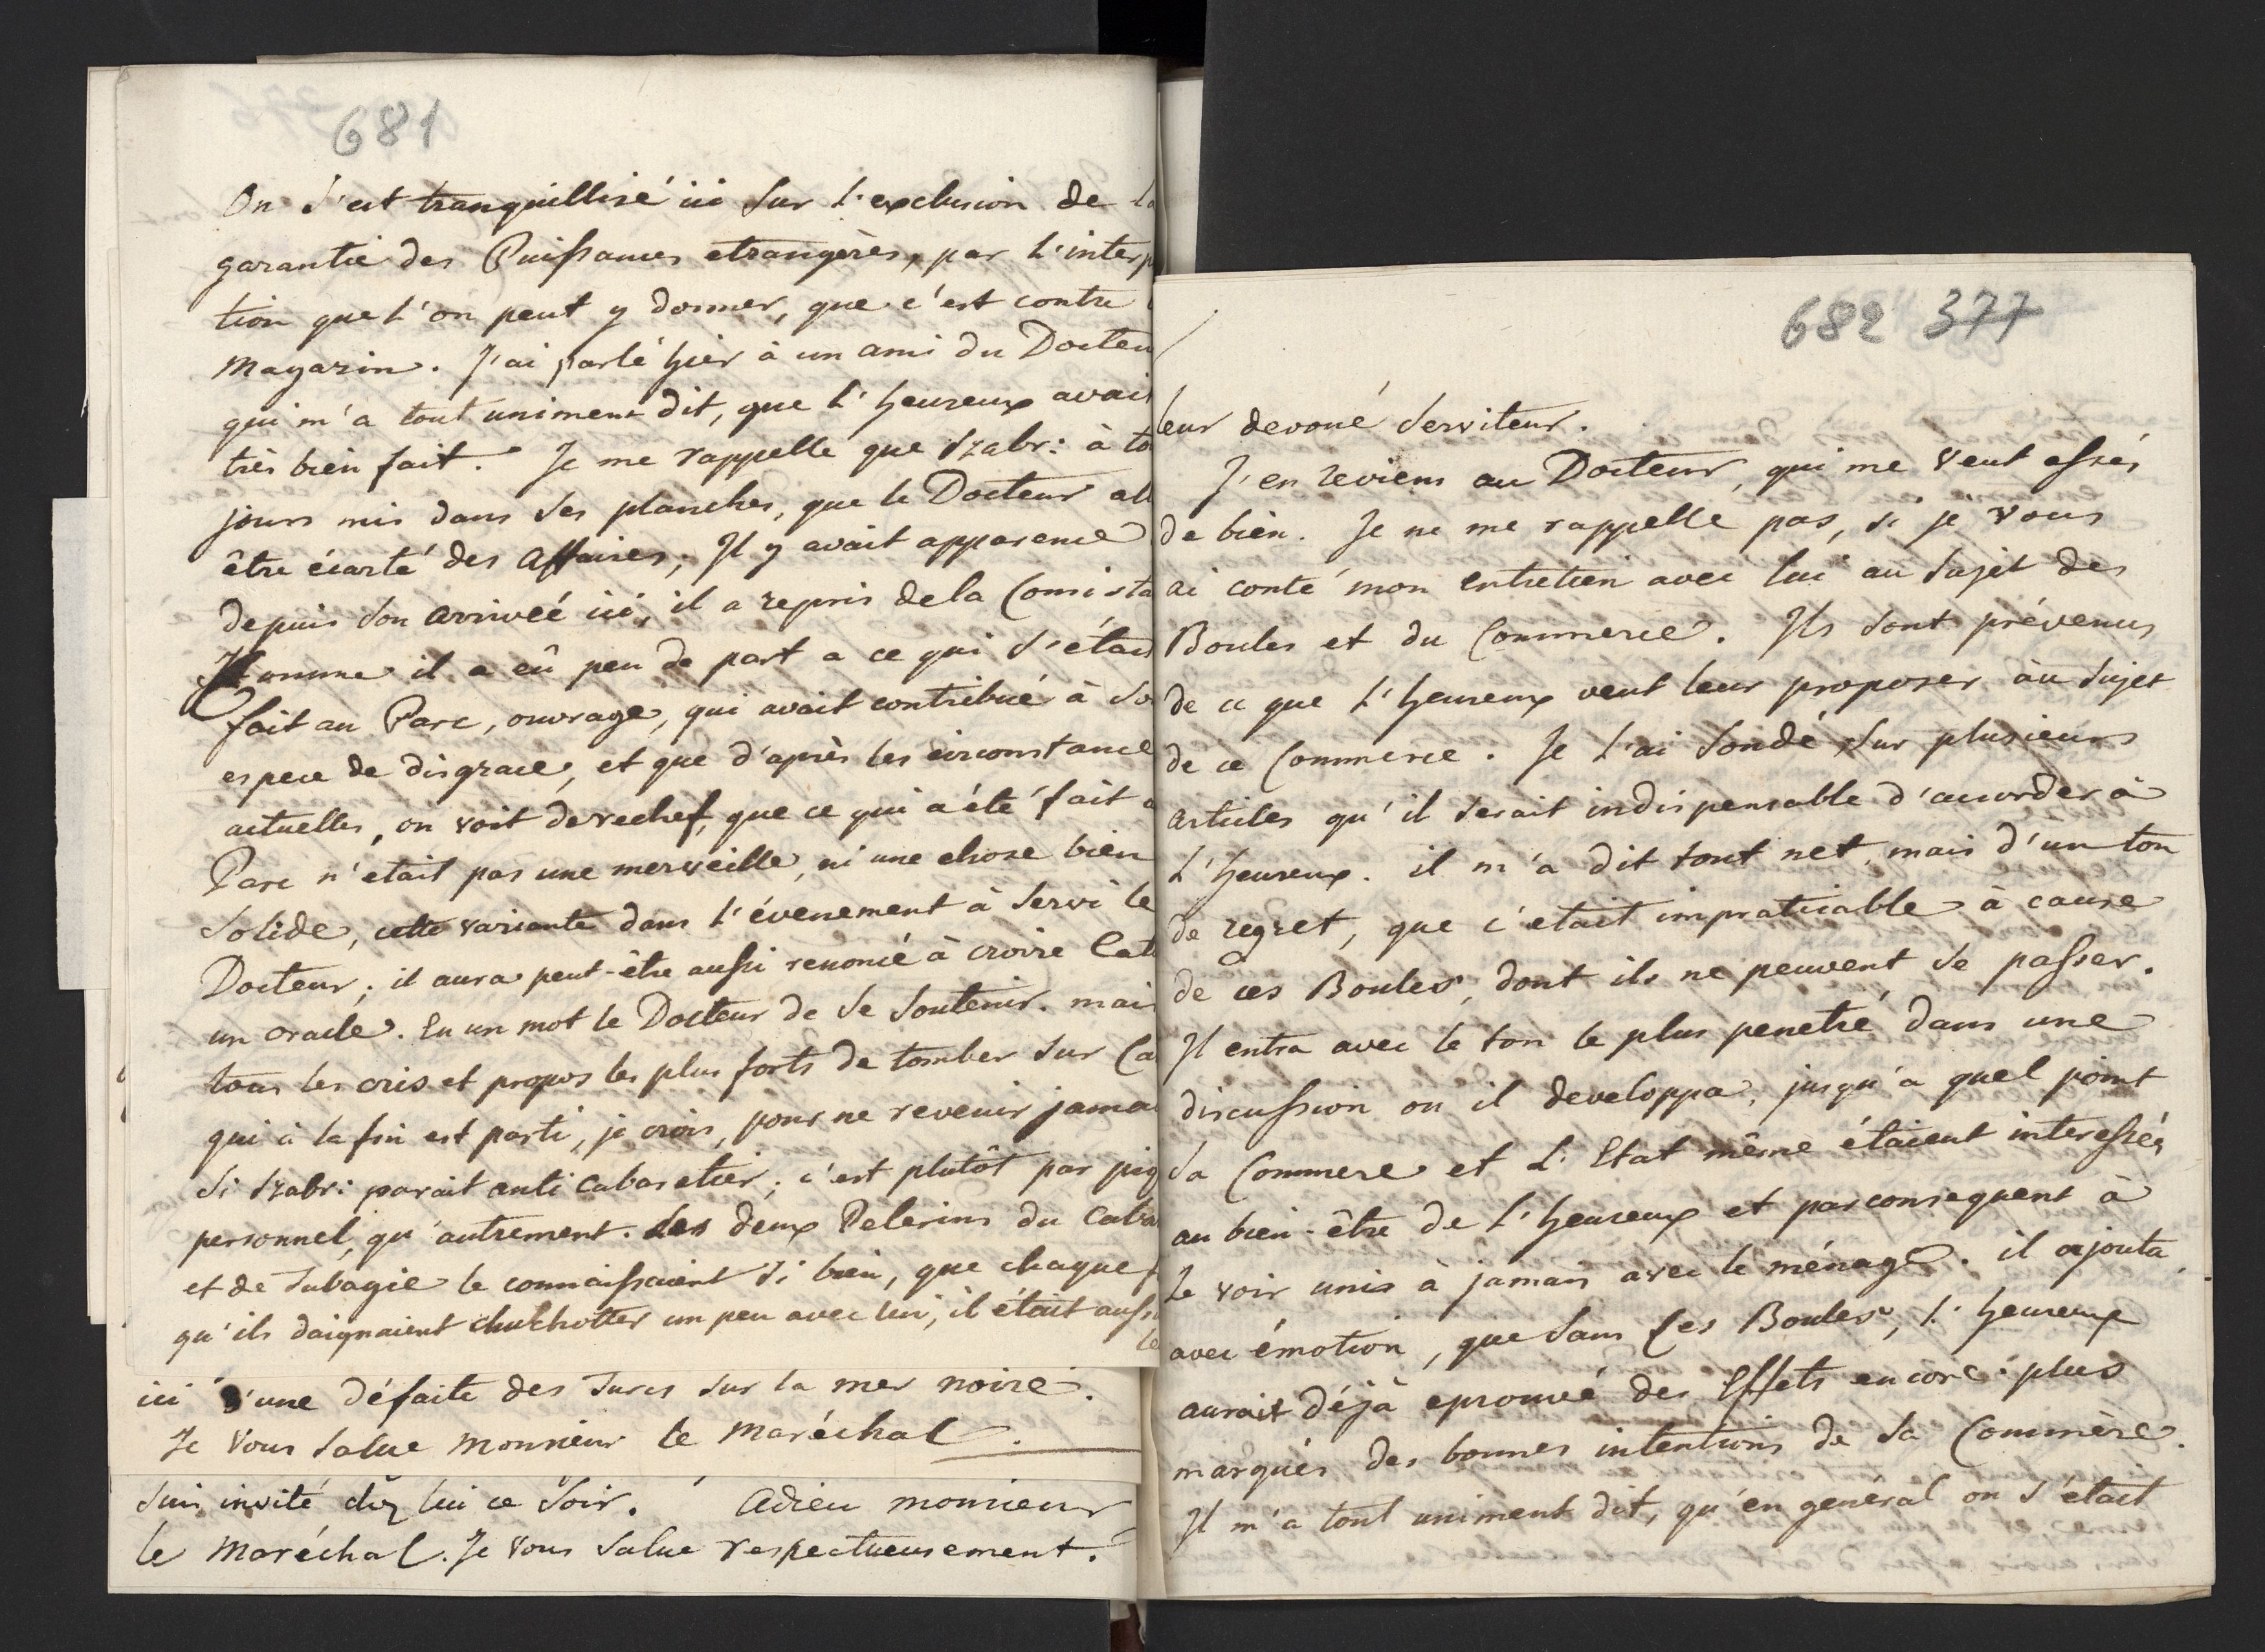 681
On s'est tranquillisé ici sur l'exclusion de la
garantie des Puissances etrangères, par l'interp
tion que l'on peut y donner, que c'est contre
Magazin. J'ai parlé hier à un ami du Docteu
qui m'a tout uniment dit, que l'heureux avait
très bien fait. Je me rappelle que Szabr: à to
jours mis dans ses planches, que le Docteur all
être écarté des Affaires; Il y avait apparence
depuis son arrivée ici, il a repris de la Consista
Comme il a eû peu de part a ce qui s'étai
fait au Parc, ouvrage, qui avait contribué à so
espece de disgrace, et que d'après les circonstance
actuelles, on voit derechef, que ce qui a été fait a
Parc n'etait pas une merveille, ni une chose bien
solide, cette variante dans l'évenement à servi le
Docteur; il aura peut-être aussi renoncé à croire Cat
un oracle. En un mot le Docteur de se soutenir. mai
tous les cris et propos les plus forts de tomber sur Ca
qui à la fin est parti, je crois, pour ne revenir jama
si Szabr: parait anti cabaretier; c'est plutôt par piq
personnel, qu'autrement. Les deux Pelerins du Caba
et de Tabagie le connaissaient si bien, que chaque f
qu'ils daignaient chuchotter un peu avec lui, il était auss
le
ici d'une défaite des Turcs sur la mer noire.
Je vous salue Monsieur le Maréchal.
suis invité chez lui ce soir. Adieu monsieur
le Maréchal. Je vous salue respectueusement.
682 377
leur devoué serviteur.
J'en reviens au Docteur, qui me veut assés
de bien. Je ne me rappelle pas, si je vous
ai conté mon entretien avec lui au sujet des
Boules et du Commerce. Ils sont prévenus
de ce que l'heureux veut leur proposer àu sujet
de ce Commerce. Je l'ai sondé sur plusieurs
articles qu'il serait indispensable d'accorder à
l'heureux. il m'a dit tout net, mais d'un ton
de regret, que c'etait impraticable à cause
de ces Boules, dont ils ne peuvent se passer.
Il entra avec le ton le plus penetré dans une
discussion ou il developpa, jusqu'a quel point
sa Commere et l'Etat même étaient interessés
au bien-être de l'heureux et parconsequent à
le voir unis à jamais avec le ménage. il ajouta
avec émotion, que sans ses Boules, l'heureux
aurait déjà eprouvé des Effets encore plus
marqués des bonnes intentions de sa Commère.
Il m'a tout uniment dit, qu'en general on s'était